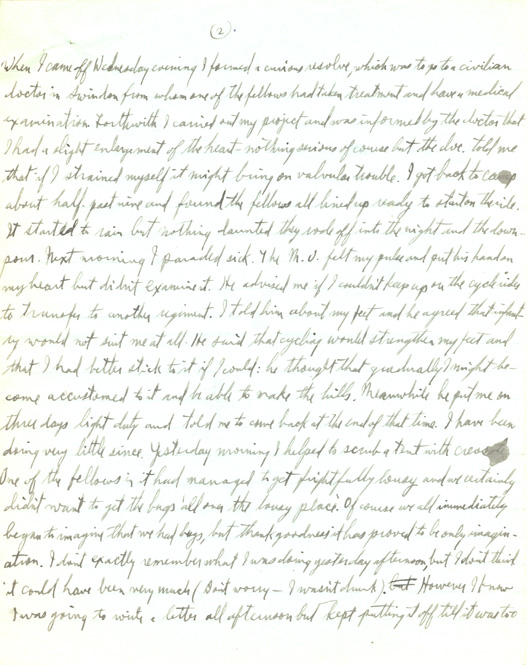 (2).
When I came off Wednesday evening I formed a curious resolve, which was to go to a civilian
doctor in Swindon from whom one of the fellows had taken treatment and have a medical
examination. Forthwith I carried out my project and was informed by the doctor that
I had a slight enlargement of the heart - nothing serious of course but the doc. told me
that if I strained myself it might bring on valvular trouble. I got back to camp
about half-past nine and found the fellows all lined up ready to start on the ride.
It started to rain but nothing daunted they rode off into the night and the down-
pour. Next morning I paraded sick. The M.O. felt my pulse and put his hand on
my heart but didn't examine it. He advised me if I couldn't keep up on the cycle rides
to transfer to another regiment. I told him about my feet and he agreed that infant-
ry would not suit me at all. He said that cycling would strengthen my feet and
that I had better stick to it if I could: he thought that gradually I might be-
come accustomed to it and be able to make the hills. Meanwhile he put me on
three days light duty and told me to come back at the end of that time. I have been
doing very little since. Yesterday morning I helped to scrub a tent with creosol.
One of the fellows in it had managed to get frightfully lousy and we certainly
didn't want to get the bugs all over the lousy place. Of course we all immediately
began to imagine that we had bugs, but thank goodness it has proved to be only imagin-
ation. I don't exactly remember what I was doing yesterday afternoon, but I don't think
it could have been very much (Don't worry - I wasn't drunk). but However I know
I was going to write a letter all afternoon but kept putting it off till it was too